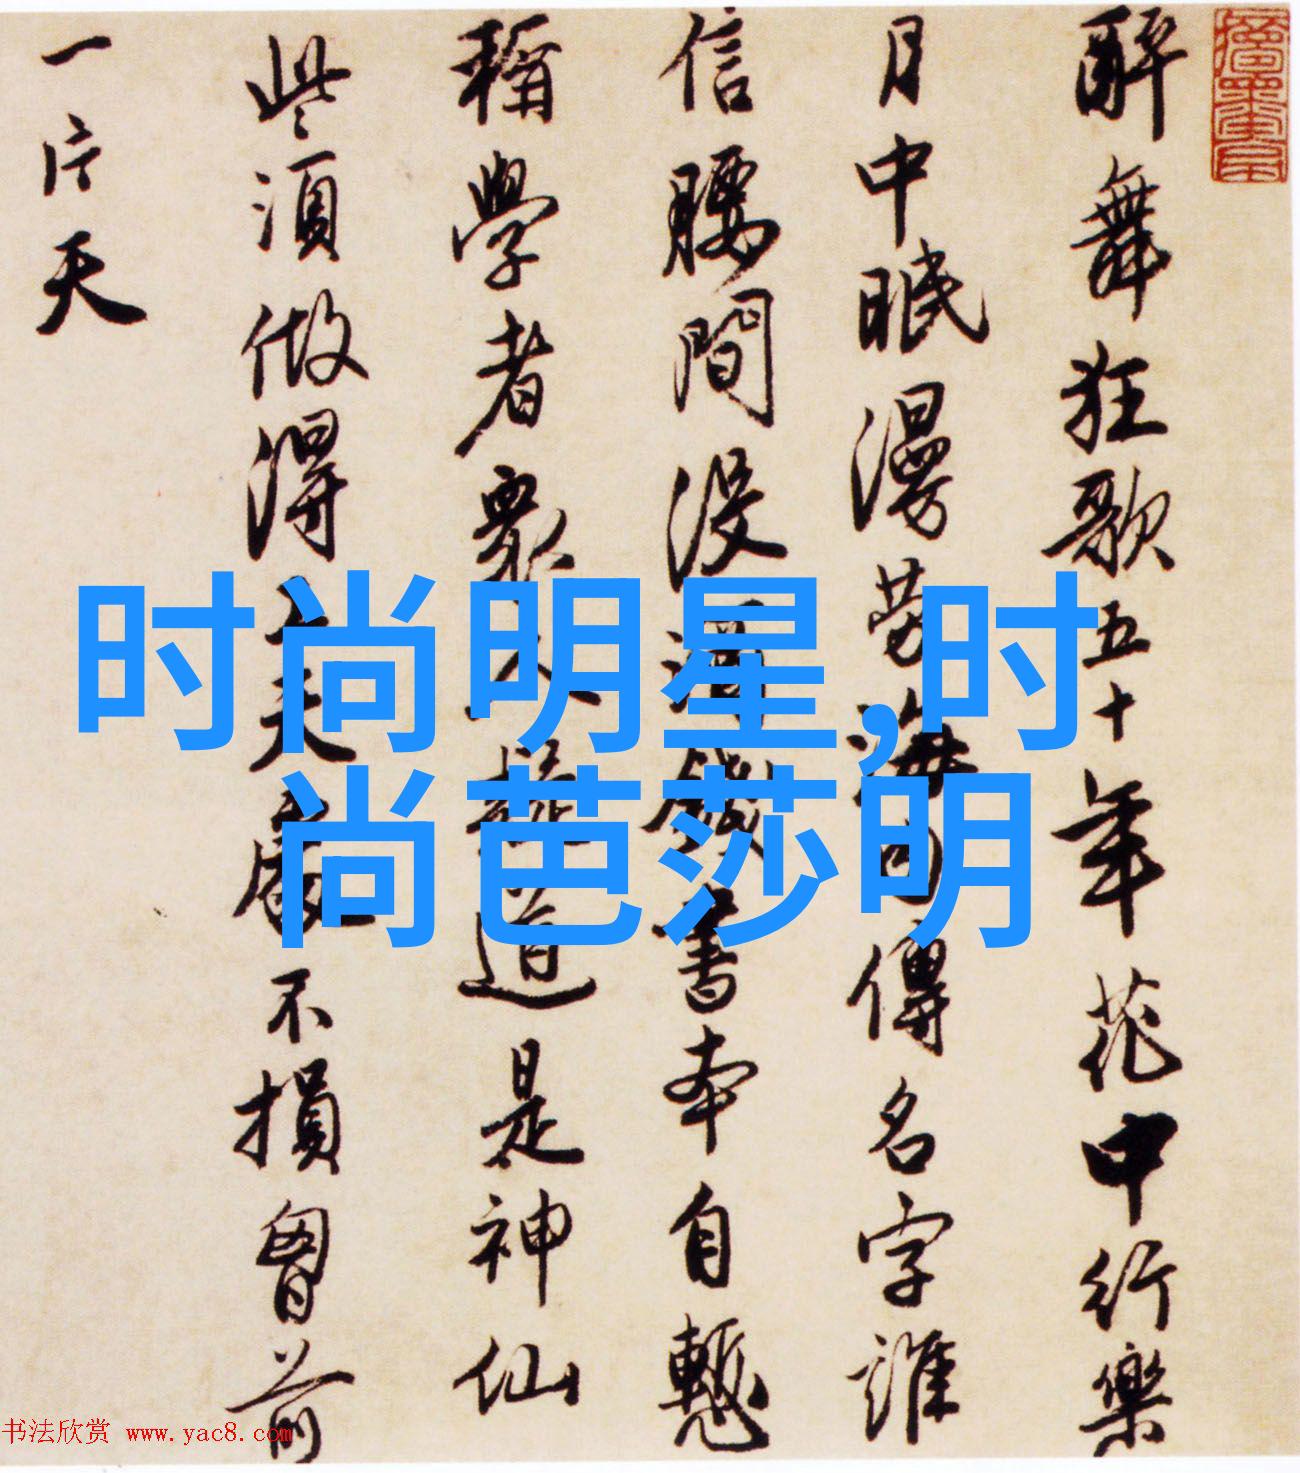 醉舞狂歌五十年花中行樂
月中眠漫勞海內傳名字誰
信腰間沒酒錢書本自慙
稱學者眾人疑道是神仙
些須做得工夫處不損胷前
一片天
时尚明星,时
尚芭莎明
书法欣赏 www.yac8.com